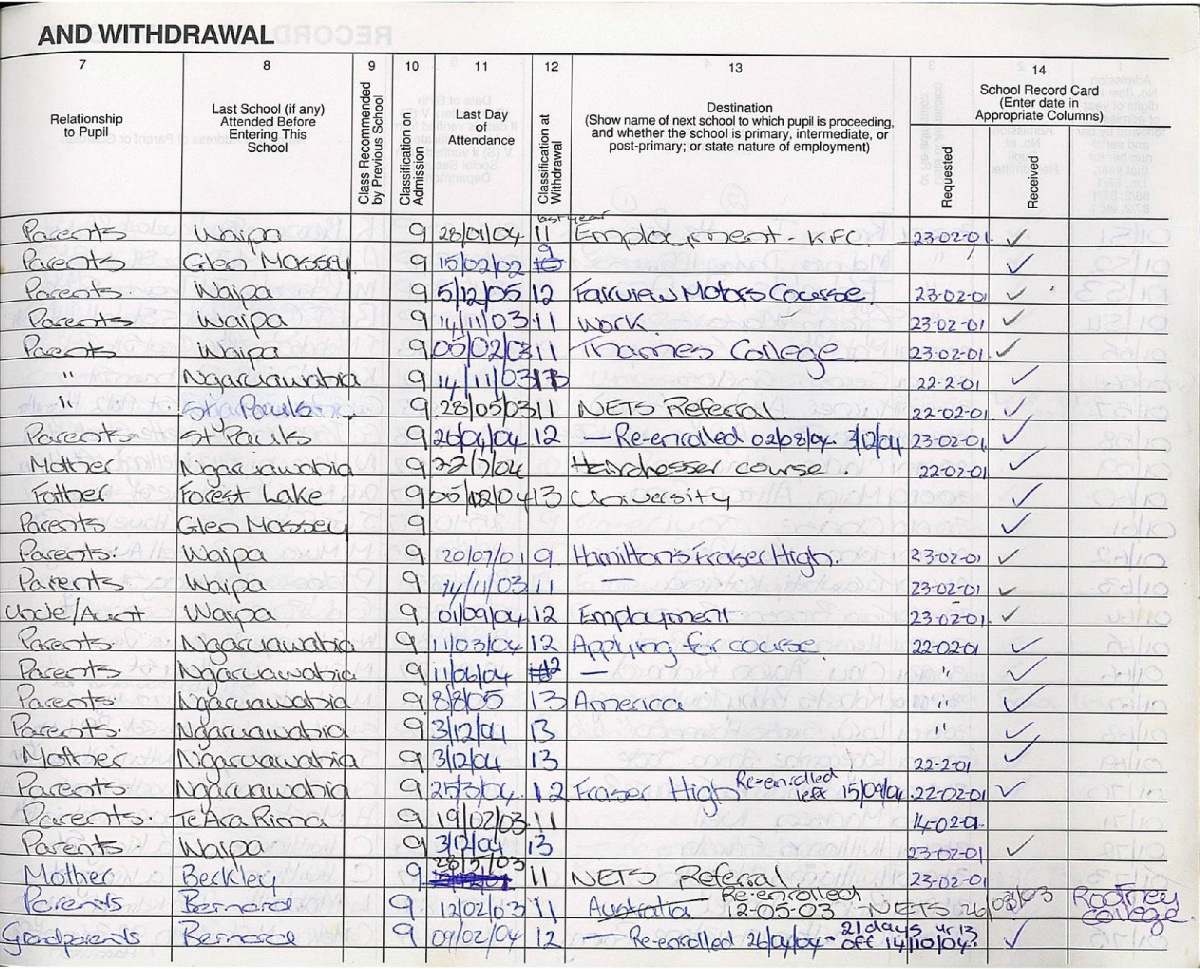 AND WITHDRAWAL
7 8 9 10 11 12 13 14
Relationship to Pupil
Last School (if any) Attended Before Entering This School
Class Recommended by Previous School
Classification on Admission
Last Day of Attendance
Classification at Withdrawal
Destination
(Show name of next school to which pupil is proceeding, and whether the school is primary, intermediate, or post-primary; or state nature of employment)
School Record Card
(Enter date in Appropriate Columns)
Requested
Received
last year
Parents Waipa 9 28/01/04 11 Employment - KFC 23-02-01 ✓
Parents Glen Massey 9 15/02/02 9 " ✓
Parents. Waipa 9 5/12/05 12 Fairview Motors Course. 23-02-01 ✓
Parents Waipa 9 14/11/03 11 Work. 23-02-01 ✓
Parents Waipa 9 05/02/03 11 Thames College 23-02-01 ✓
" Ngaruawahia 9 14/11/03 22-2-01 ✓
" St Pauls. 9 28/05/03 11 NETS Referral 22-02-01 ✓
Parents. St Pauls 9 26/04/04 12 — Re-enrolled 02/08/04. 3/12/04 23-02-01 ✓
Mother Ngaruawahia 9 22/7/04 Hairdresser course 22-02-01 ✓
Father Forest Lake 9 05/12/04 13 University ✓
Parents Glen Massey 9 ✓
Parents. Waipa 9 20/07/01 9 Hamilton's Fraser High. 23-02-01 ✓
Parents Waipa 9 14/11/03 11 — 23-02-01 ✓
Uncle/Aunt Waipa 9 01/09/04 12 Employment 23-02-01 ✓
Parents Ngaruawahia 9 11/03/04 12 Applying for course. 22-02-01 ✓
Parents Ngaruawahia 9 11/06/04 12 — " ✓
Parents Ngaruawahia 9 8/8/05 13 America " ✓
Parents. Ngaruawahia 9 3/12/04 13 " ✓
Mother Ngaruawahia 9 3/12/04 13 22-2-01 ✓
Parents Ngaruawahia 9 25/3/04. 12 Fraser High Re-enrolled left 15/09/04. 22-02-01 ✓
Parents. Te Ara Rima 9 19/02/03 11 14-02-01.
Parents. Waipa 9 3/12/04 13 23-02-01 ✓
Mother Berkley 9 28/5/03 11 NETS Referral 23-02-01
Parents Bernard. 9 12/02/03 11 Australia Re-enrolled 12-05-03 - NETS 26/03/03 College.
Grandparents Bernard 9 09/02/04 12 — Re-enrolled 26/04/04 - 21 days yr 13 off 14/10/04. ✓